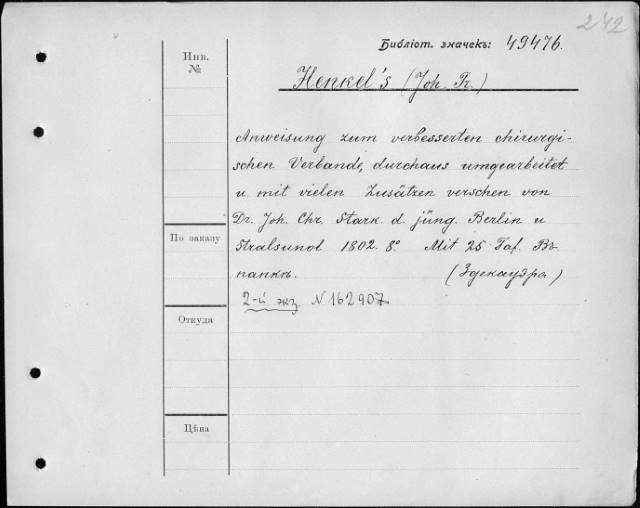 242
Библіот. значекъ: 49476.
Инв.
№
Henkel's (Joh. Fr.)
Anweisung zum verbesserten chirurgi-
schen Verbande, durchaus umgearbeitet
u. mit vielen Zusätzen versehen von
Dr. Joh. Chr. Stark. d. jüng. Berlin u
Stralsund 1802. 8°. Mit 25 Taf. Въ
папкѣ. (Здекауэра)
2-й экз. N 162907
По заказу
Откуда
Цѣна